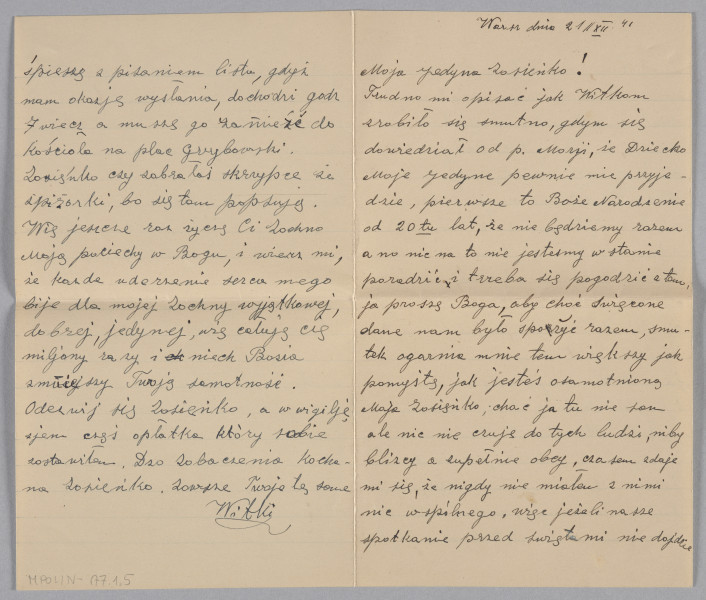 Warsz dnia 21/XII 41
Moja jedyna Zosieńko!
Trudno mi opisać jak Witkom
zrobiło się smutno, gdym się
dowiedział od p. Marji, że Dziecko
Moje jedyne pewnie nie przyje-
dzie, pierwsze to Boże Narodzenie
od 20tu lat, że nie będziemy razem
a no nic na to nie jestesmy w stanie
poradzić, i trzeba się pogodzić z tem,
ja proszę Boga, aby choć święcone
dane nam było spożyć razem, smu-
tek ogarnia mnie tem większy jak
pomyślę, jak jesteś osamotnioną
Moja Zosieńko, choć ja tu nie sam
ale nic nie czuję do tych ludzi, niby
blizcy a zupełnie obcy, czasem zdaje
mi się, że nigdy nie miałem z nimi
nic wspólnego, więc jeżeli nasze
spotkanie przed świętami nie dojdzie
śpieszę z pisaniem listu, gdyż
mam okazję wysłania, dochodzi godz
7 wiecz a muszę go zanieść do
Kościoła na plac Grzybowski.
Zosieńko czy zabrałaś skrzypce ze
śpiżarki, bo się tam popsują.
Więc jeszcze raz życzę Ci Zochno
Moja pociechy w Bogu, i wierz mi,
że każde uderzenie serca mego
bije dla mojej Zochny wyjątkowej,
dobrej, jedynej, więc całuję cię
miljony razy i niech Bozia
zmniejszy Twoją samotność.
Odezwij się Zosieńko, a w wigilję
zjem częś opłatka który sobie
zostawiłem. Dzo zobaczenia kocha-
na Zosieńko. Zawsze Twoje te same
Witki
MPOLIN-A7.1.5